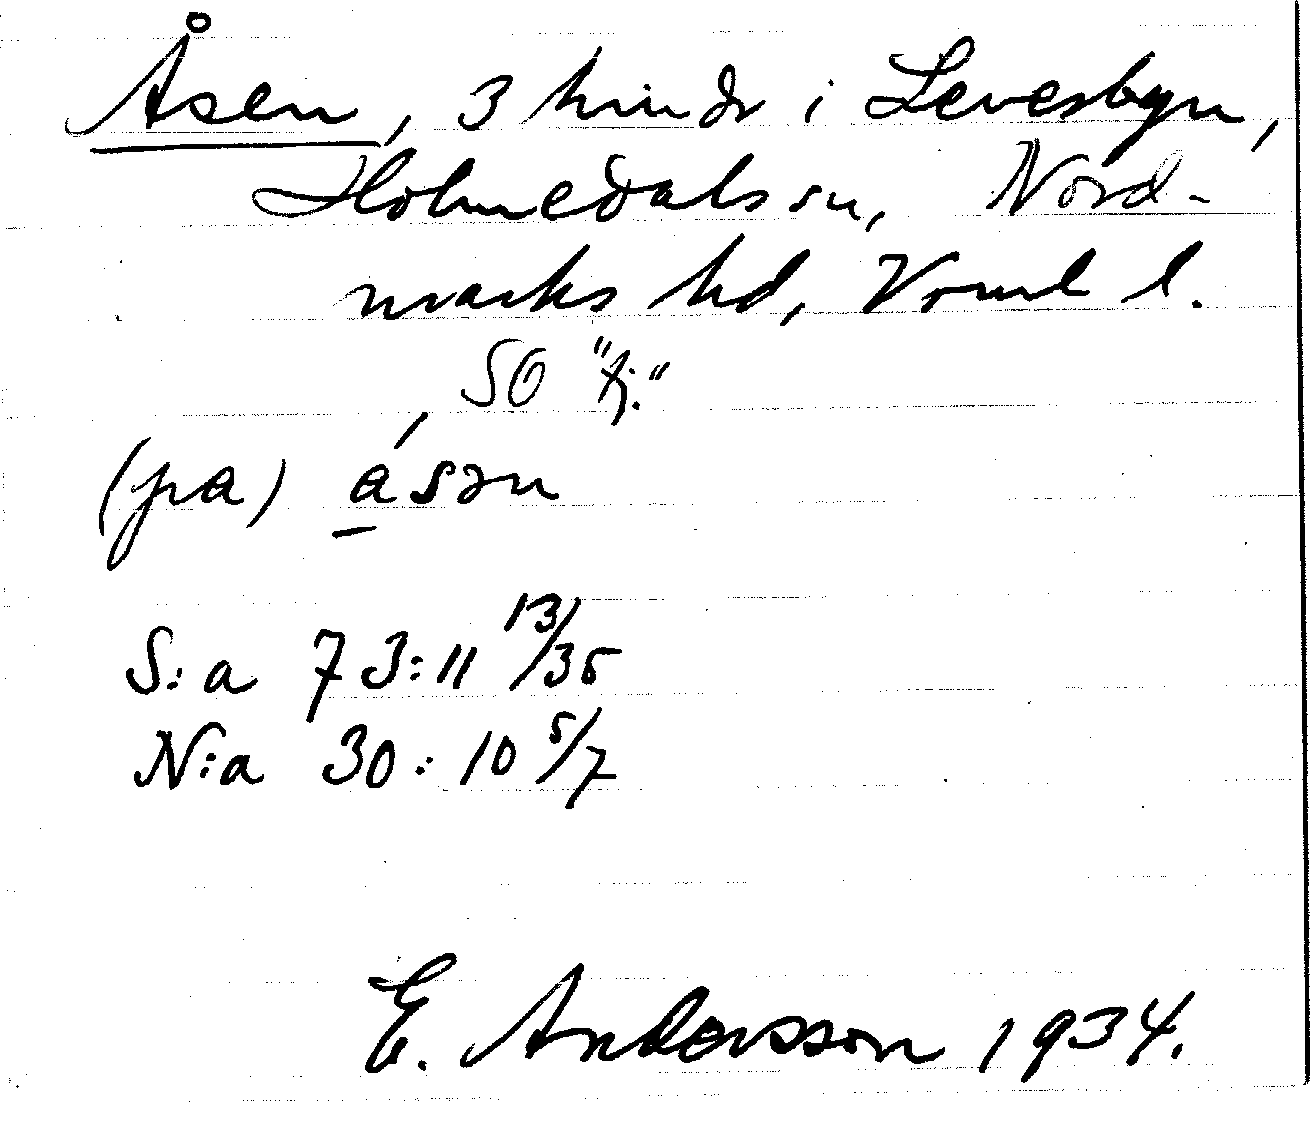 Åsen, 3 hmdr i Levesbyn,
Holmedals sn, Nord-
marks hd, Vrml l.
SO "kj."
(pa) ásən
S:a 73:11 13/35
N:a 30:10 5/7
E. Andersson 1934.